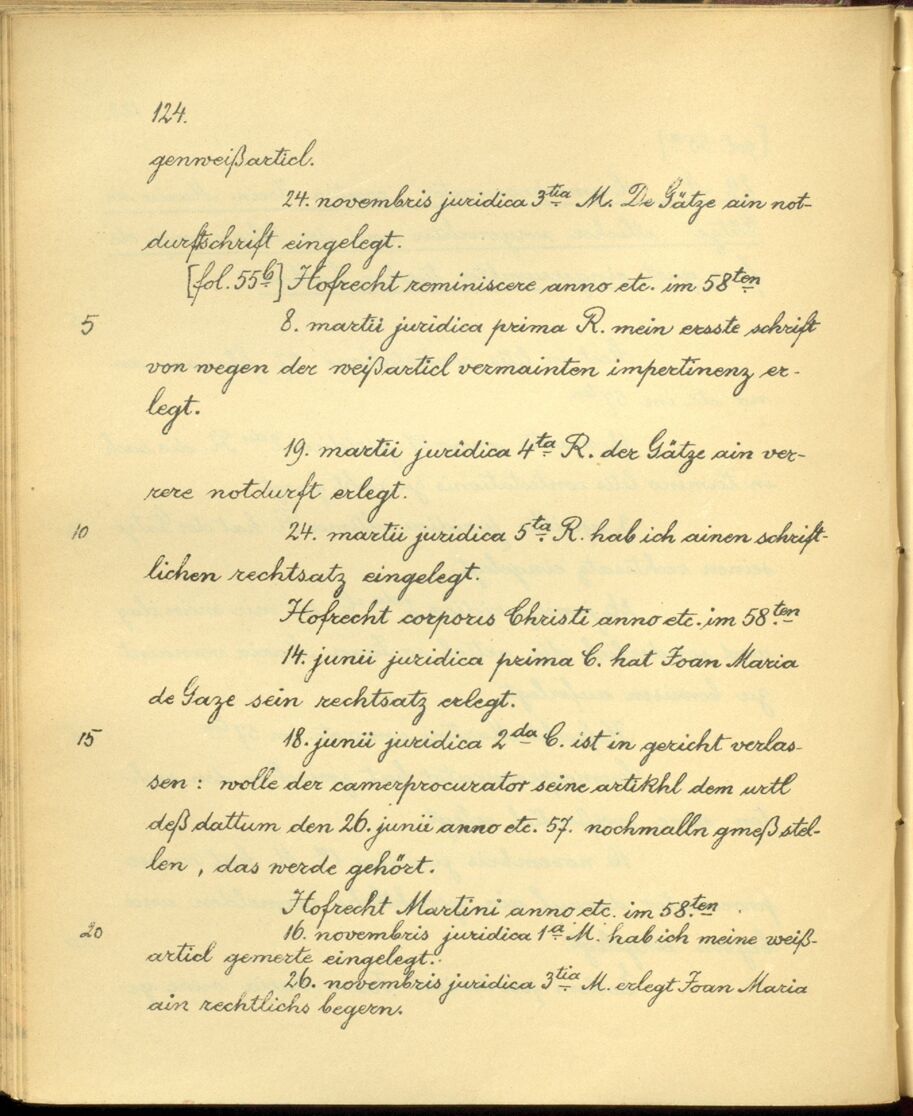 124.
genweißarticl.
24. novembris juridica 3tia M. De Gätze ain not-
durftschrift eingelegt.
[fol. 55b] Hofrecht reminiscere anno etc. im 58ten
5 8. martii juridica prima R. mein ersste schrift
von wegen der weißarticl vermainten impertinenz er-
legt.
19. martii juridica 4ta R. der Gätze ain ver-
rere notdurft erlegt.
10 24. martii juridica 5ta R. hab ich ainen schrift-
lichen rechtsatz eingelegt.
Hofrecht corporis Christi anno etc. im 58ten
14. junii juridica prima C. hat Joan Maria
de Gaze sein rechtsatz erlegt.
15 18. junii juridica 2da C. ist in gericht verlas-
sen: wolle der camerprocurator seine artikhl dem urtl
deß dattum den 26. junii anno etc. 57. nochmalln gmeß stel-
len, das werde gehört.
Hofrecht Martini anno etc. im 58.ten
20 16. novembris juridica 1a M. hab ich meine weiß-
articl gemerte eingelegt.
26. novembris juridica 3tia M. erlegt Joan Maria
ain rechtlichs begern.